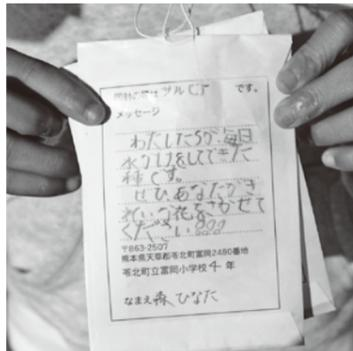 です。
メッセージ
わたしたちが、毎日
水かけをしてできた
種です。
ぜひあなたがき
れいな花をさかせて
ください。
〒863-2507
熊本県天草郡苓北町富岡2480番地
苓北町立富岡小学校4年
なまえ 森 ひなた